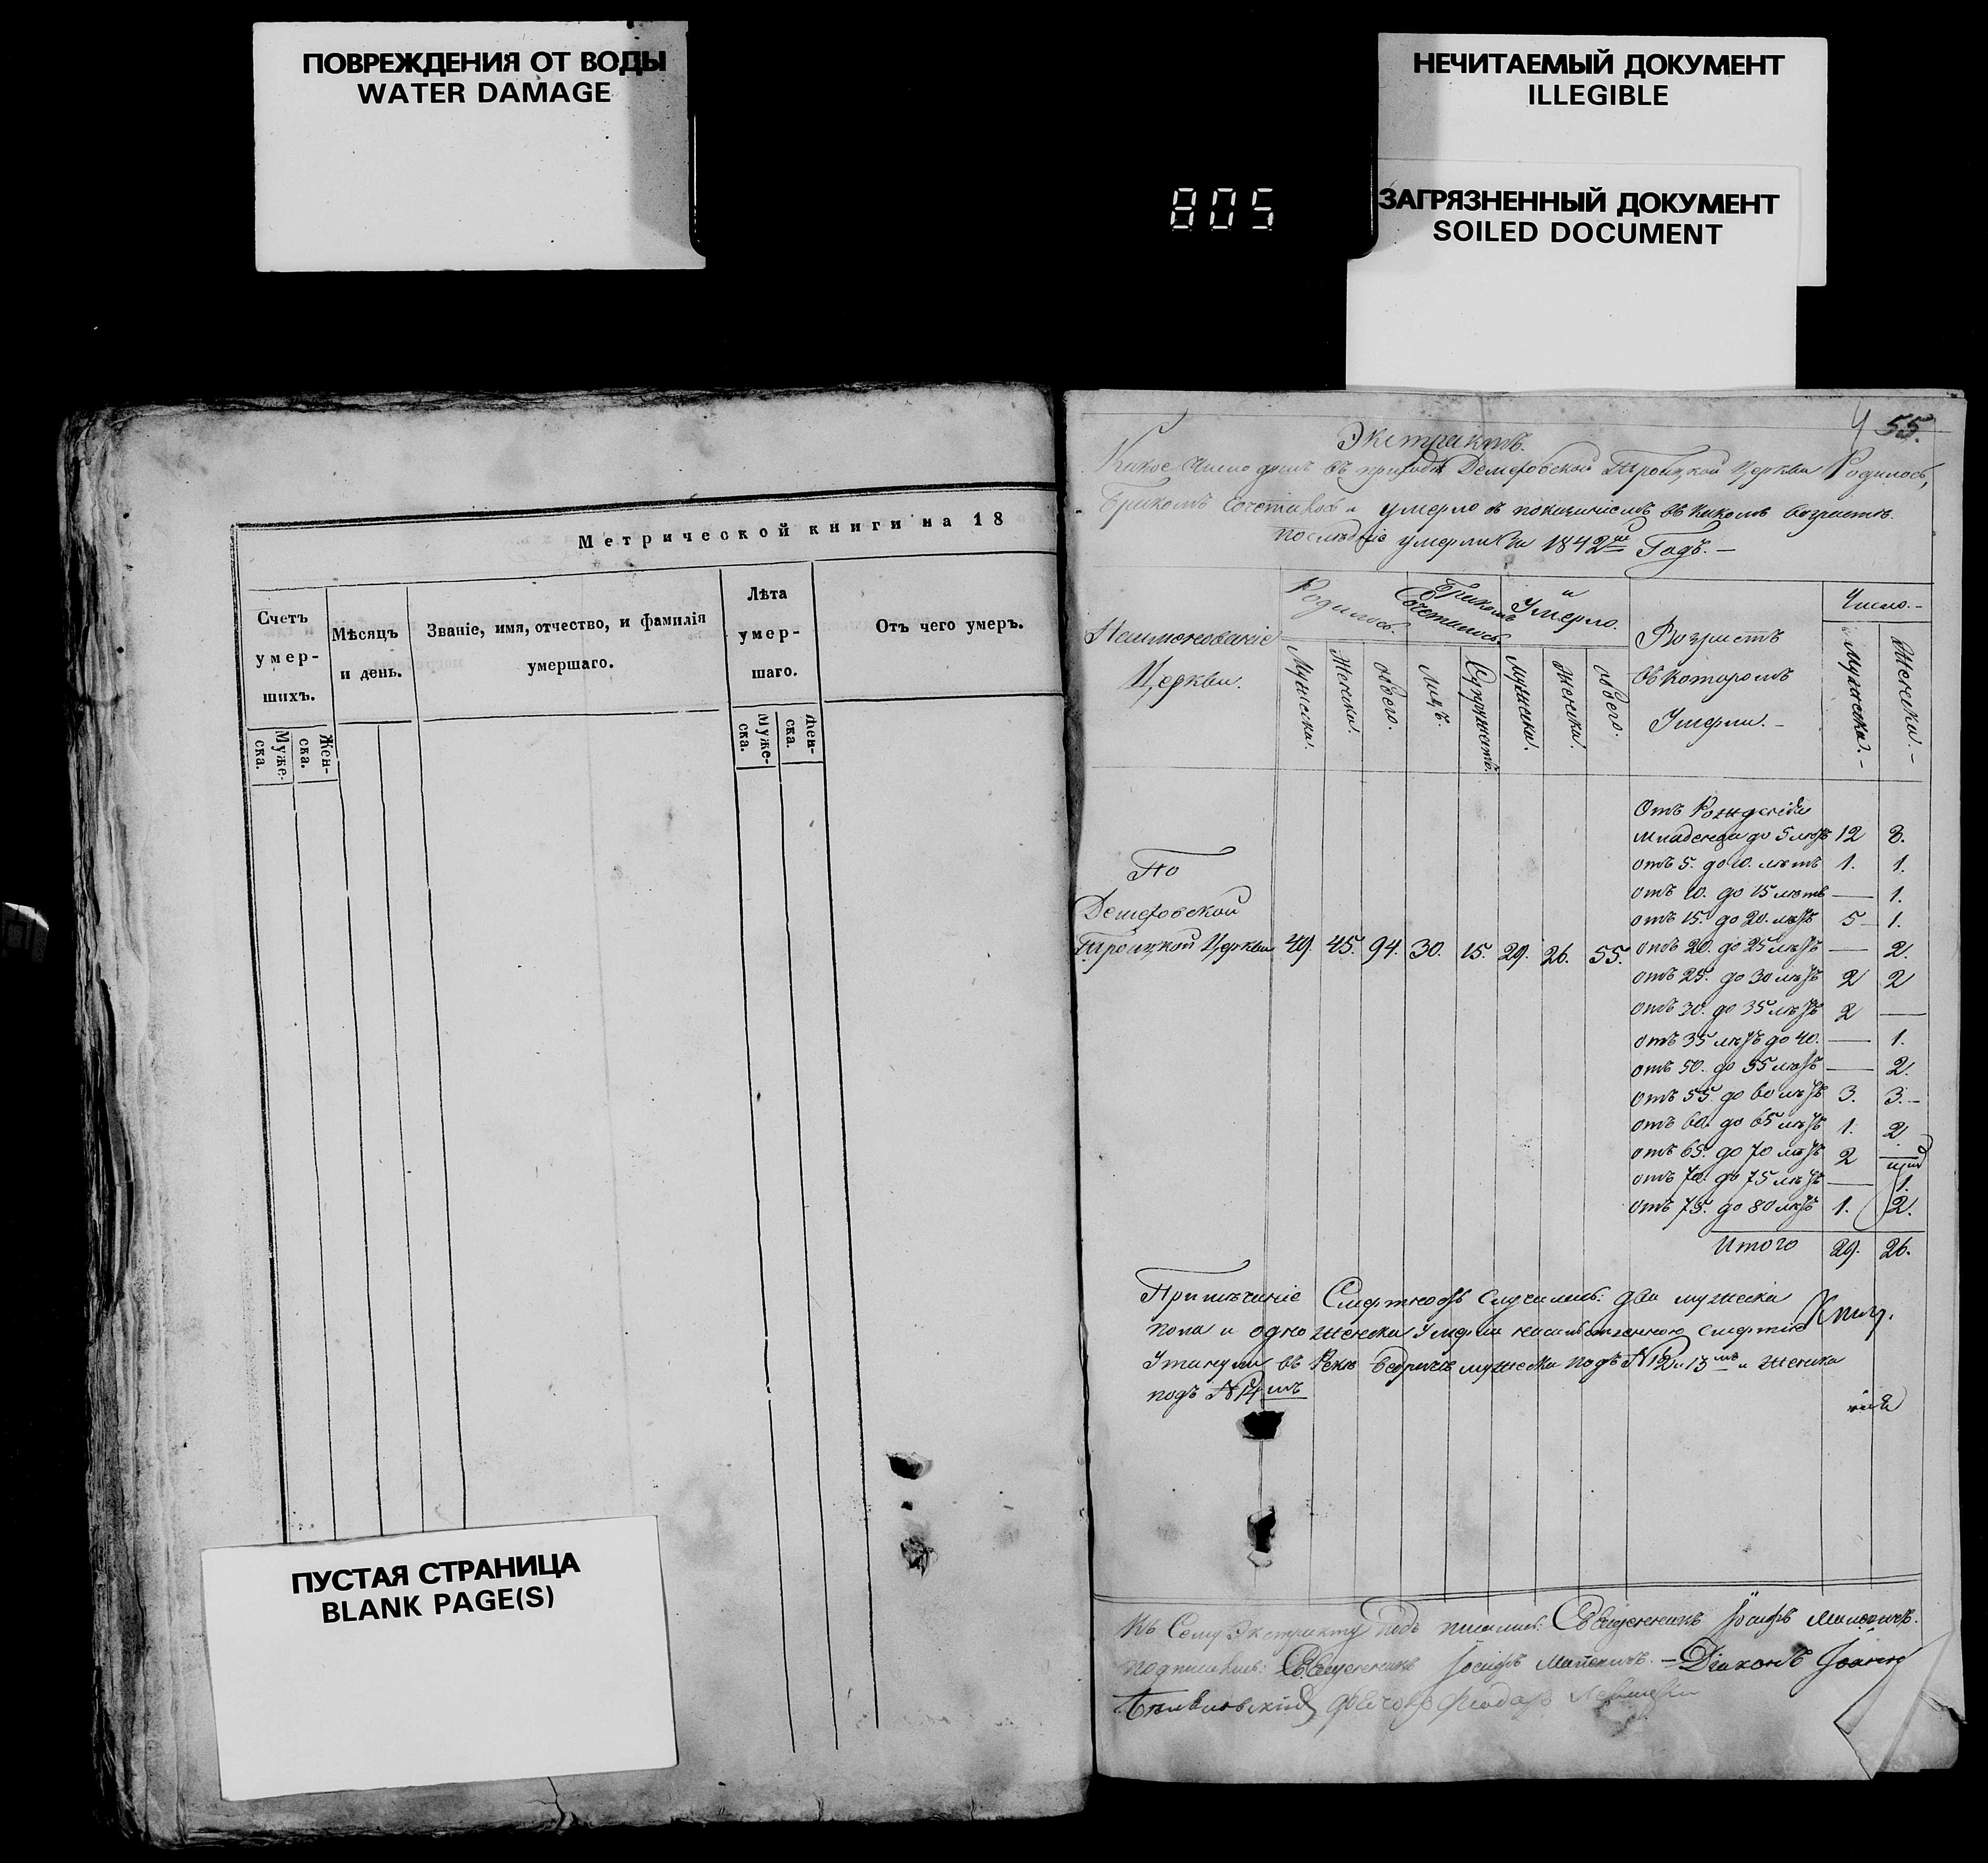 ПОВРЕЖДЕНИЯ ОТ ВОДЫ
WATER DAMAGE
НЕЧИТАЕМЫЙ ДОКУМЕНТ
ILLEGIBLE
805
ЗАГРЯЗНЕННЫЙ ДОКУМЕНТ
SOILED DOCUMENT
Метрической книги на 18
Счетъ умер-шихъ.
Муже-ска.
Жен-ска.
Мѣсяцъ и день.
Званіе, имя, отчество, и фамилія умершаго.
Лѣта умер-шаго.
Муже-ска.
Жен-ска.
Отъ чего умеръ.
ПУСТАЯ СТРАНИЦА
BLANK PAGE(S)
55.
Экстрактъ.
Какое число душъ въ приходѣ Троицкой Церкви Родилось,
Бракомъ сочеталось и умерло въ какомъ возрастѣ
последніе умерли За 1842й Годъ. —
Наименованіе Церкви.
Родилось.
Мужеска.
Женска.
Обоего.
Бракомъ Сочеталось
Лицъ.
Супружествъ.
и Умерло.
Мужеска.
Женска.
Обоего.
Возрастъ въ которомъ Умерли. —
Число. —
Мужеска. —
Женска. —
Отъ Рожденія
младенца до 5 лѣтъ 12 8.
отъ 5. до 10. лѣтъ 1. 1.
отъ 10. до 15 лѣтъ — 1.
отъ 15. до 20. лѣтъ 5 1.
По
Троицкой Церкви 49. 45. 94. 30. 15. 29. 26. 55. отъ 20. до 25 лѣтъ — 2.
отъ 25. до 30 лѣтъ 2 2
отъ 30. до 35 лѣтъ 2 —
отъ 35 лѣтъ до 40. — 1.
отъ 50. до 55 лѣтъ — 2.
отъ 55. до 60 лѣтъ 3. 3. —
отъ 60. до 65 лѣтъ 1. 2
отъ 65. до 70 лѣтъ 2 —
отъ 70. до 75 лѣтъ — 1.
отъ 75. до 80 лѣтъ 1. 2.
Итого 29. 26.
Примѣчаніе Смертность случилась: два мужеска
пола и одно женска Умерли смертію
Утанули въ Реке мужеска подъ N 12 и 13мъ и женска
подъ N 14мъ
Къ Сему Экстракту Подъ писались: Священникъ Іосифъ
подписались: Священникъ Іосифъ — Діаконъ Іоаннъ